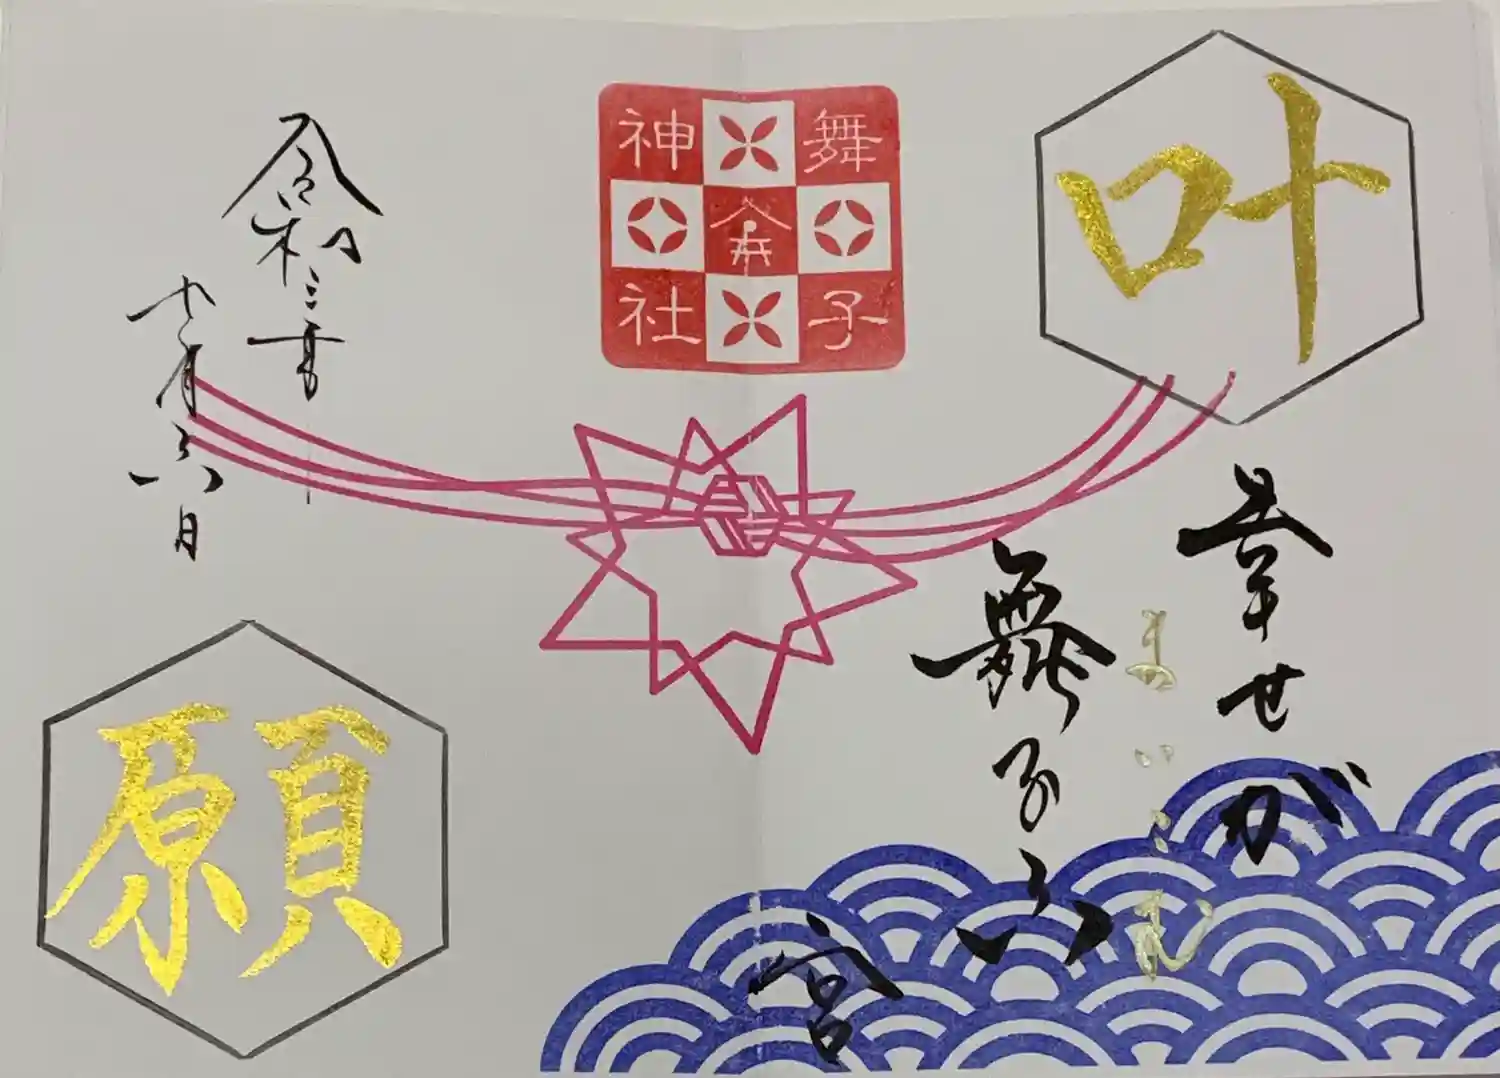 叶
幸せが
まいこむ
舞子六宮
舞子
神社
令和三年
月六日
願